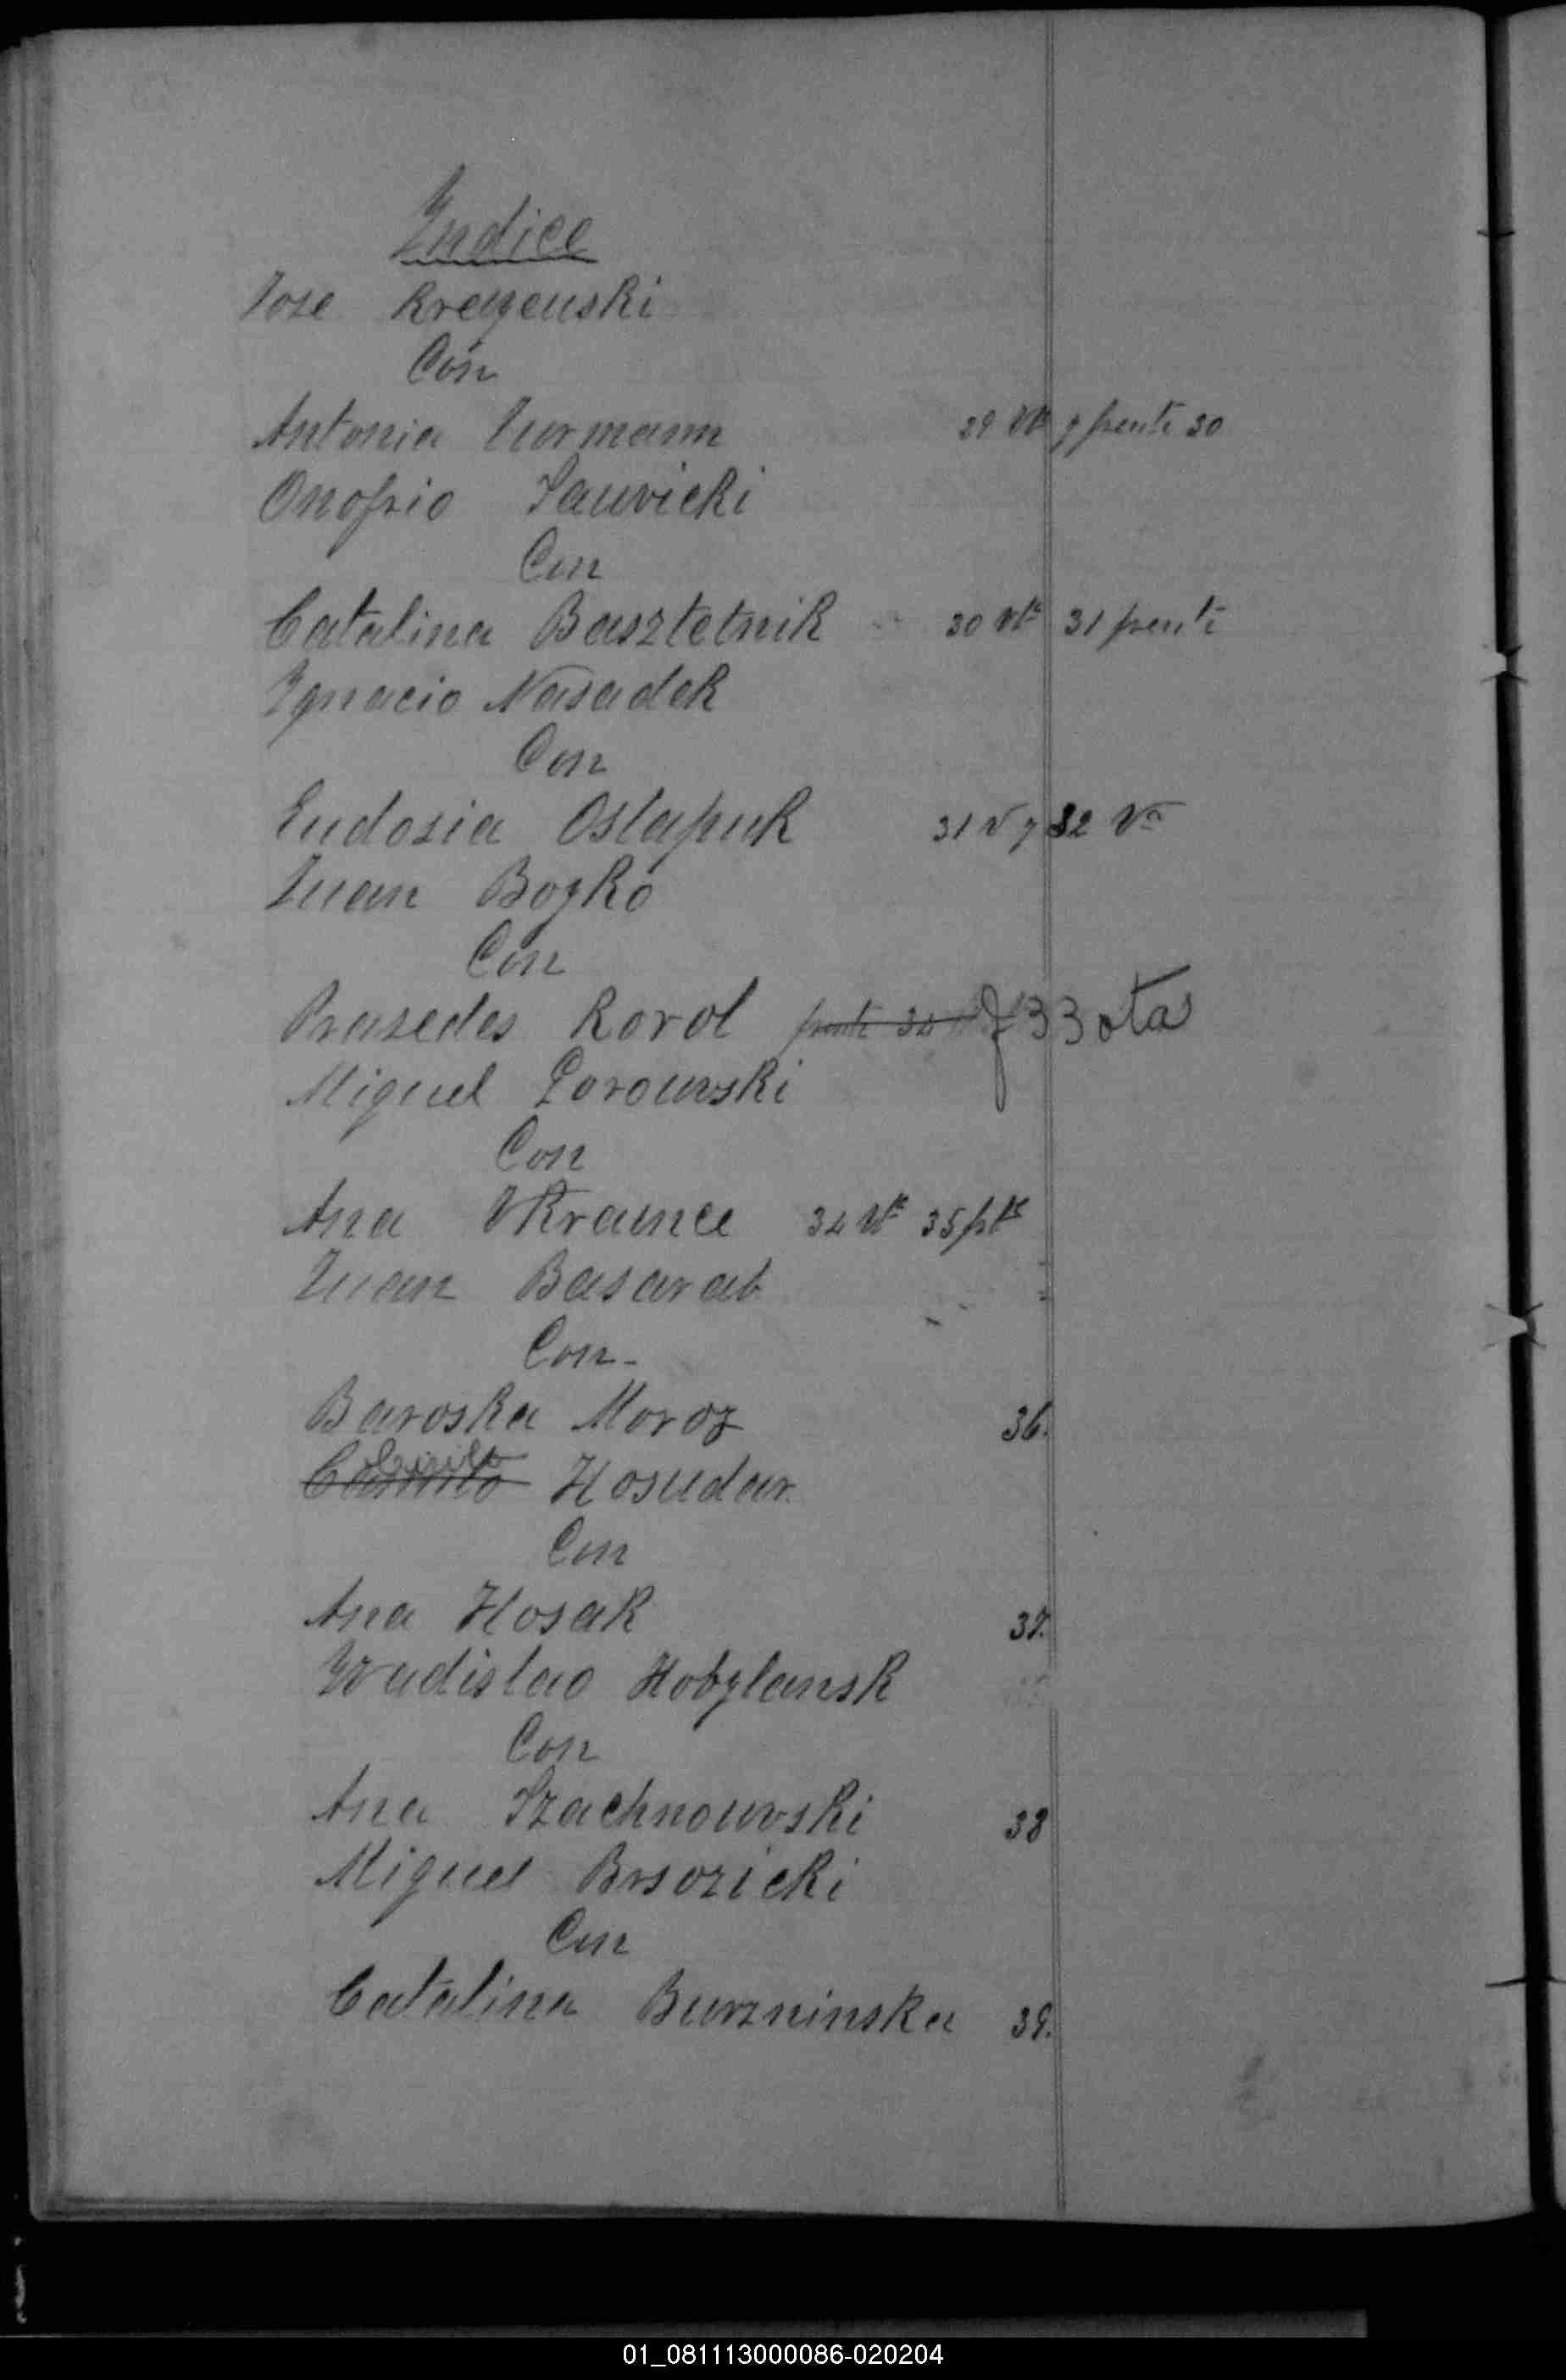 Indice
Jose Kreyenski
Con
Antonia Curmann 29 vta y frente 30
Onofrio Sawicki
Con
Catalina Basztetnik 30 vta 31 frente
Ignacio Nasadek
Con
Eudosia Ostapuk 31 v y 32 va
Juan Boyko
Con
Prasedes Korol frente 34 f 33 vta
Miguel Porowski
Con
Ana Ukraince 34 vta 35 fte
Juan Basarab
Con
Baroska Moroz 36.
Cirilo
Camilo Hosudar.
Con
Ana Hosak 37.
Wadislao Kobylansk
Con
Ana Szachnowski 38
Miguel Brsozicki
Con
Catalina Burzninska 39.
01_081113000086-020204